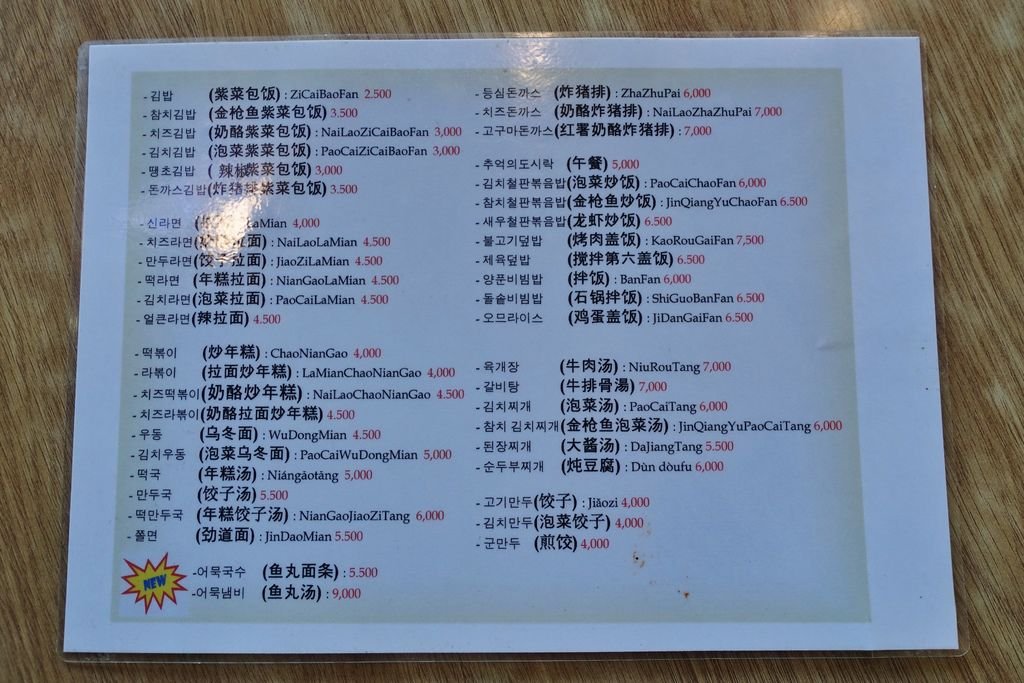 - 김밥 (紫菜包饭) : ZiCaiBaoFan 2,500
- 참치김밥 (金枪鱼紫菜包饭) 3.500
- 치즈김밥 (奶酪紫菜包饭) : NaiLaoZiCaiBaoFan 3,000
- 김치김밥 (泡菜紫菜包饭) : PaoCaiZiCaiBaoFan 3,000
- 땡초김밥 ( 辣椒紫菜包饭) 3,000
- 돈까스김밥(炸猪排紫菜包饭) 3.500
- 신라면 LaMian 4,000
- 치즈라면 拉面) : NaiLaoLaMian 4.500
- 만두라면(饺子拉面) : JiaoZiLaMian 4.500
- 떡라면 (年糕拉面) : NianGaoLaMian 4.500
- 김치라면(泡菜拉面) : PaoCaiLaMian 4.500
- 얼큰라면(辣拉面) 4.500
- 떡볶이 (炒年糕) : ChaoNianGao 4,000
- 라볶이 (拉面炒年糕) : LaMianChaoNianGao 4,000
- 치즈떡볶이(奶酪炒年糕) : NaiLaoChaoNianGao 4.500
- 치즈라볶이(奶酪拉面炒年糕) 4.500
- 우동 (乌冬面) : WuDongMian 4.500
- 김치우동 (泡菜乌冬面) : PaoCaiWuDongMian 5,000
- 떡국 (年糕汤) : Niángāotāng 5,000
- 만두국 (饺子汤) 5.500
- 떡만두국 (年糕饺子汤) : NianGaoJiaoZiTang 6,000
- 쫄면 (劲道面) : JinDaoMian 5.500
NEW
-어묵국수 (鱼丸面条) : 5.500
-어묵냄비 (鱼丸汤) : 9,000
- 등심돈까스 (炸猪排) : ZhaZhuPai 6,000
- 치즈돈까스 (奶酪炸猪排) : NaiLaoZhaZhuPai 7,000
- 고구마돈까스(红署奶酪炸猪排) : 7,000
- 추억의도시락 (午餐) 5,000
- 김치철판볶음밥(泡菜炒饭) : PaoCaiChaoFan 6,000
- 참치철판볶음밥(金枪鱼炒饭) : JinQiangYuChaoFan 6.500
- 새우철판볶음밥(龙虾炒饭) 6.500
- 불고기덮밥 (烤肉盖饭) : KaoRouGaiFan 7,500
- 제육덮밥 (搅拌第六盖饭) 6.500
- 양푼비빔밥 (拌饭) : BanFan 6,000
- 돌솥비빔밥 (石锅拌饭) : ShiGuoBanFan 6.500
- 오므라이스 (鸡蛋盖饭) : JiDanGaiFan 6.500
- 육개장 (牛肉汤) : NiuRouTang 7,000
- 갈비탕 (牛排骨湯) 7,000
- 김치찌개 (泡菜汤) : PaoCaiTang 6,000
- 참치 김치찌개(金枪鱼泡菜汤) : JinQiangYuPaoCaiTang 6,000
- 된장찌개 (大酱汤) : DaJiangTang 5.500
- 순두부찌개 (炖豆腐) : Dùn dòufu 6,000
- 고기만두(饺子) : Jiǎozi 4,000
- 김치만두(泡菜饺子) 4,000
- 군만두 (煎饺) 4,000